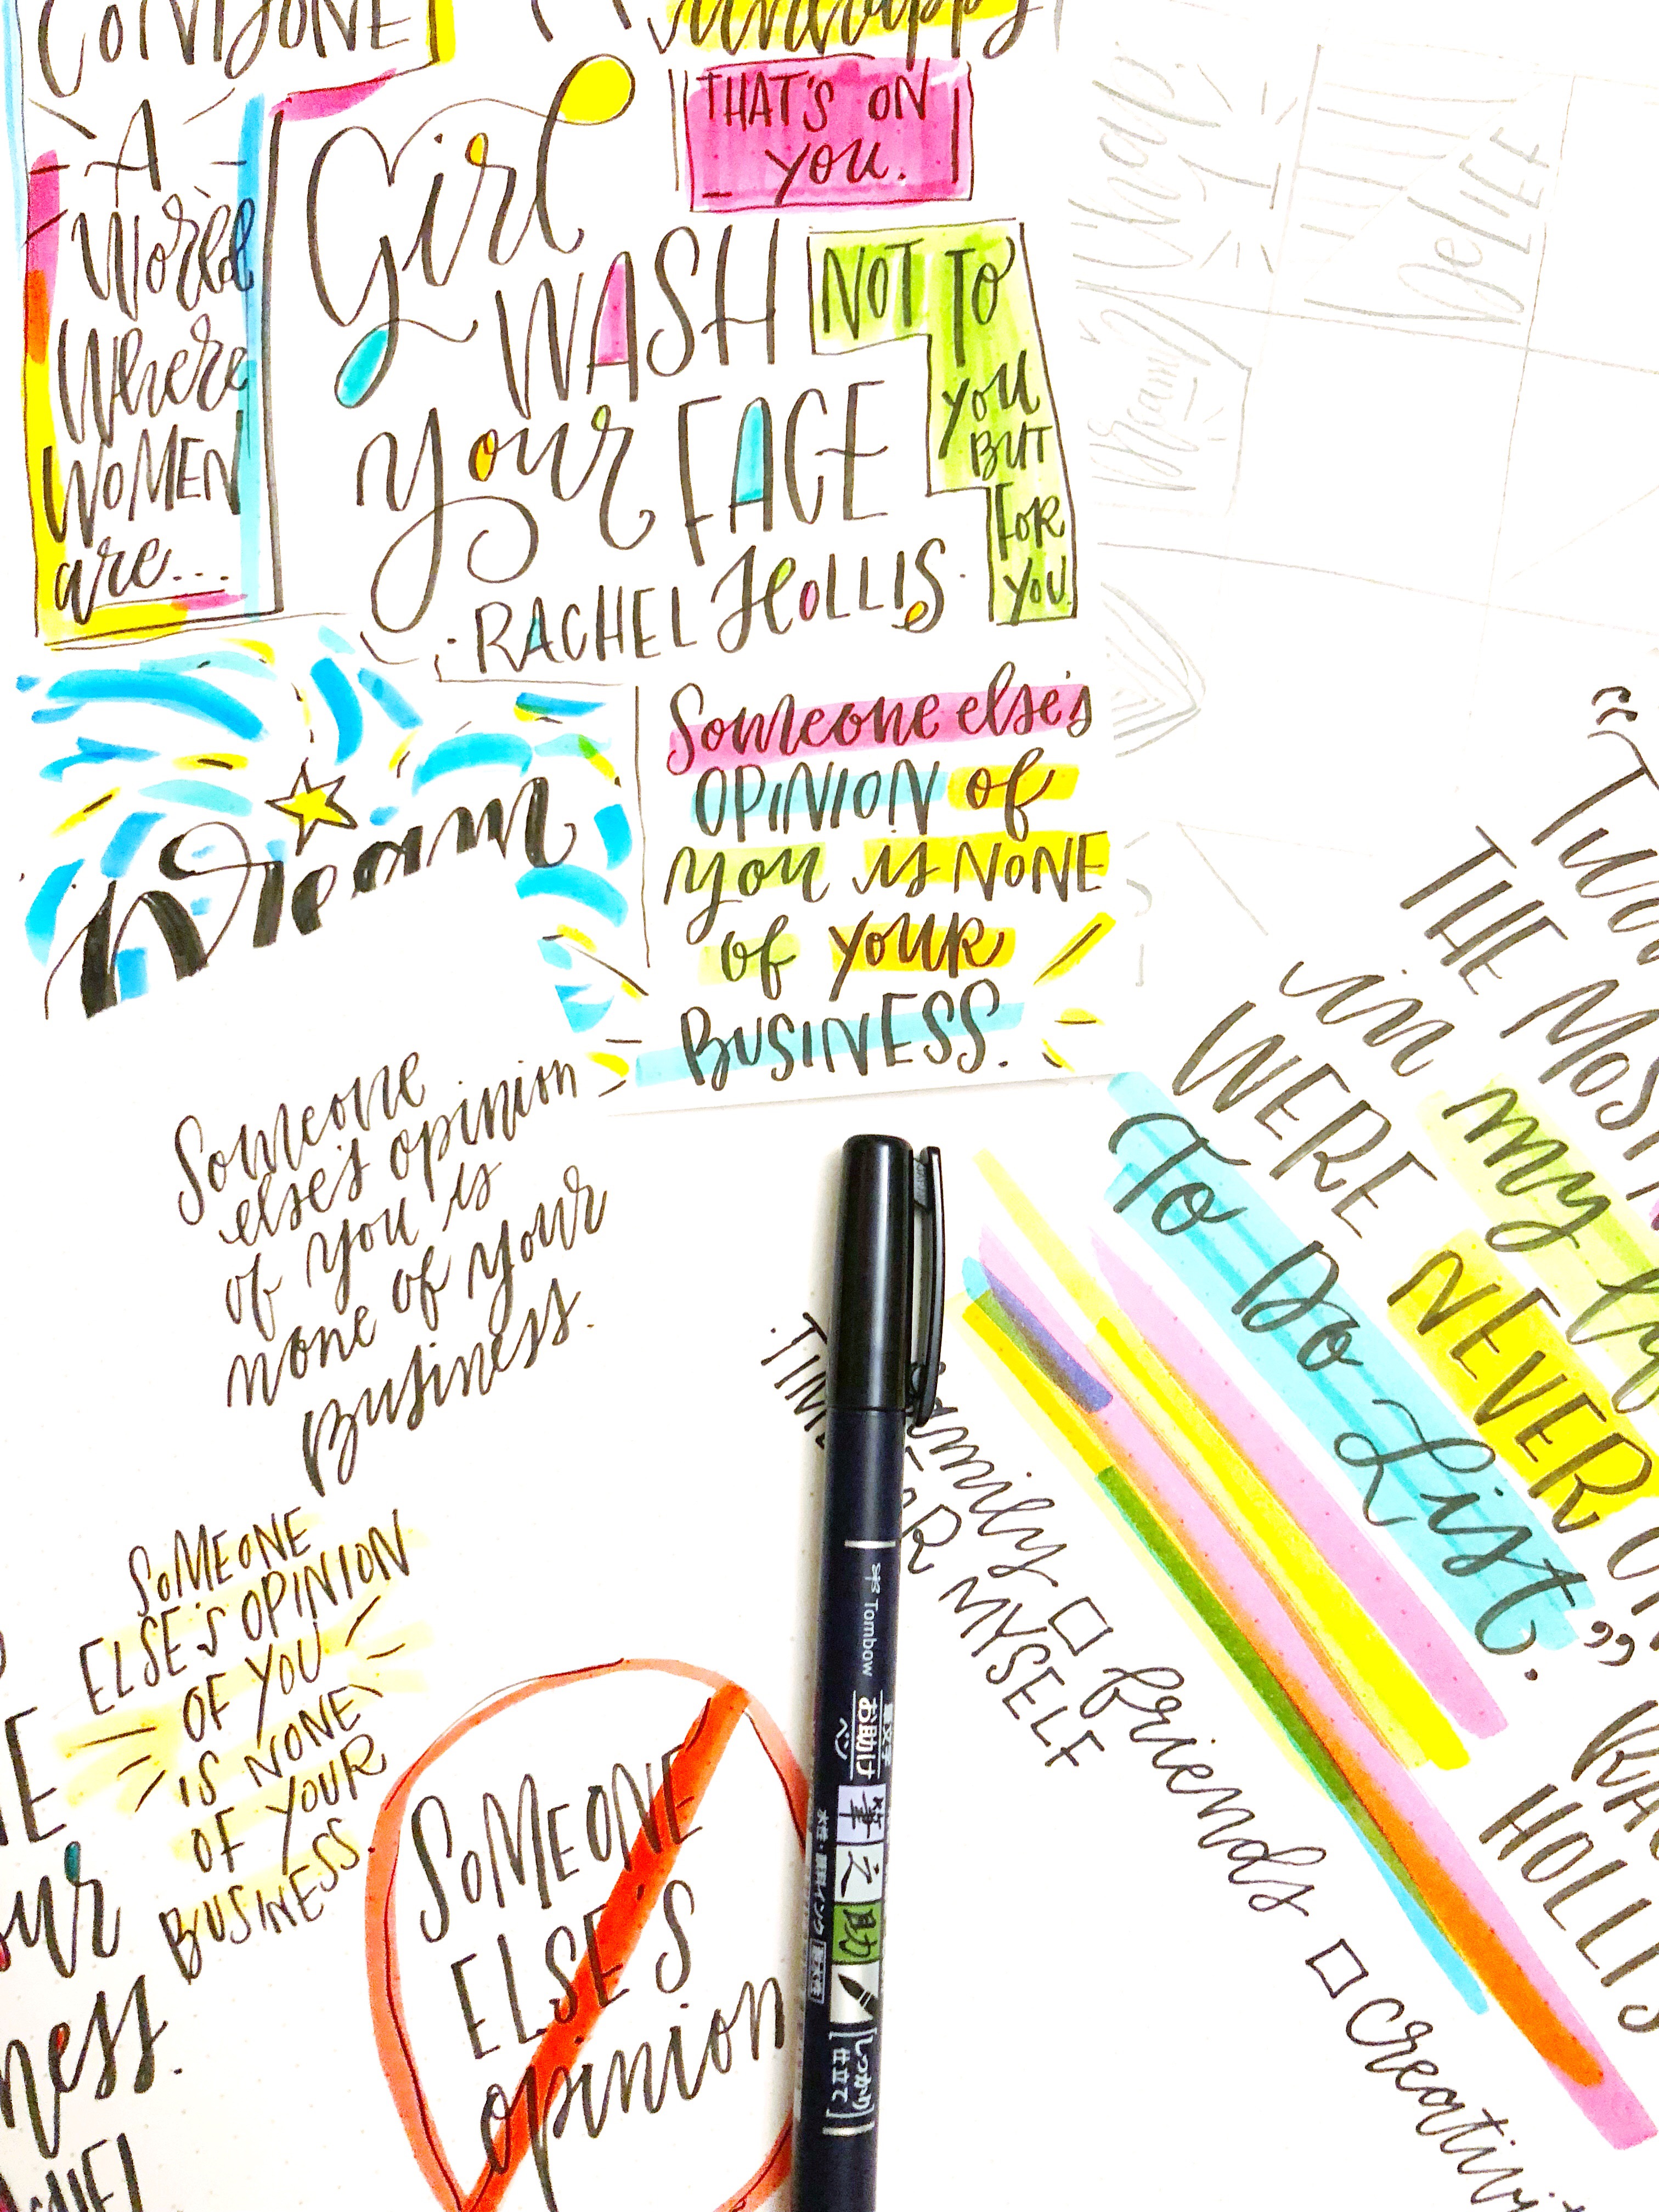 THAT'S ON
you.
A
World
Where
WOMEN
are...
Girl
WASH
your FACE
RACHEL HOLLIS
NOT TO
you
BUT
FOR
YOU.
Dream
Someone else's
OPINION of
you is NONE
of YOUR
BUSINESS.
Someone
else's opinion
of you is
none of your
Business.
SOMEONE
ELSE'S OPINION
OF YOU
IS NONE
OF YOUR
BUSINESS
SOMEONE
ELSE'S
opinion
BELIEF
Dream
THE
in my
WERE NEVER
To Do List."
HOLLIS
friends
MYSELF
Tombow
筆文字
お助け
ペン
筆之助
しっかり
仕立て
ness.